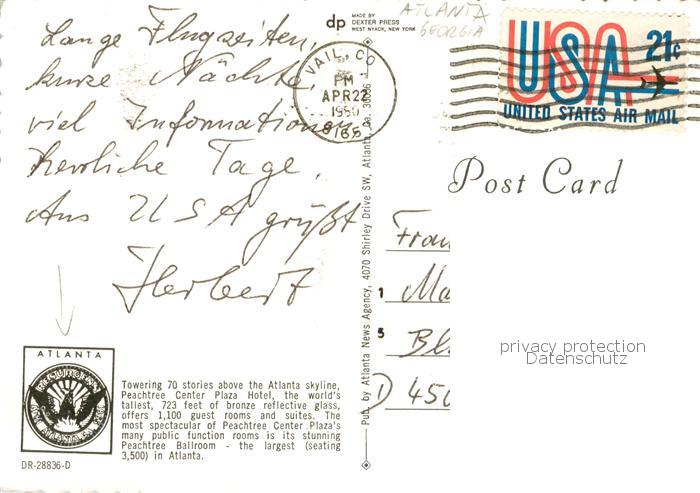 Lange Flugzeiten,
kurze Nächte,
viel Informationen
herrliche Tage,
Aus USA grüßt
Herbert
ATLANTA
Towering 70 stories above the Atlanta skyline,
Peachtree Center Plaza Hotel, the world's
tallest, 723 feet of bronze reflective glass,
offers 1,100 guest rooms and suites. The
most spectacular of Peachtree Center Plaza's
many public function rooms is its stunning
Peachtree Ballroom - the largest (seating
3,500) in Atlanta.
DR-28836-D
dp
MADE BY
DEXTER PRESS
WEST NYACK, NEW YORK
ATLANTA
GEORGIA
VAIL, CO
PM
APR 22
1980
Pub. by Atlanta News Agency, 4070 Shirley Drive SW, Atlanta, Ga. 30336
USA 21c
UNITED STATES AIR MAIL
Post Card
Fran
Ma
Bl
450
privacy protection
Datenschutz